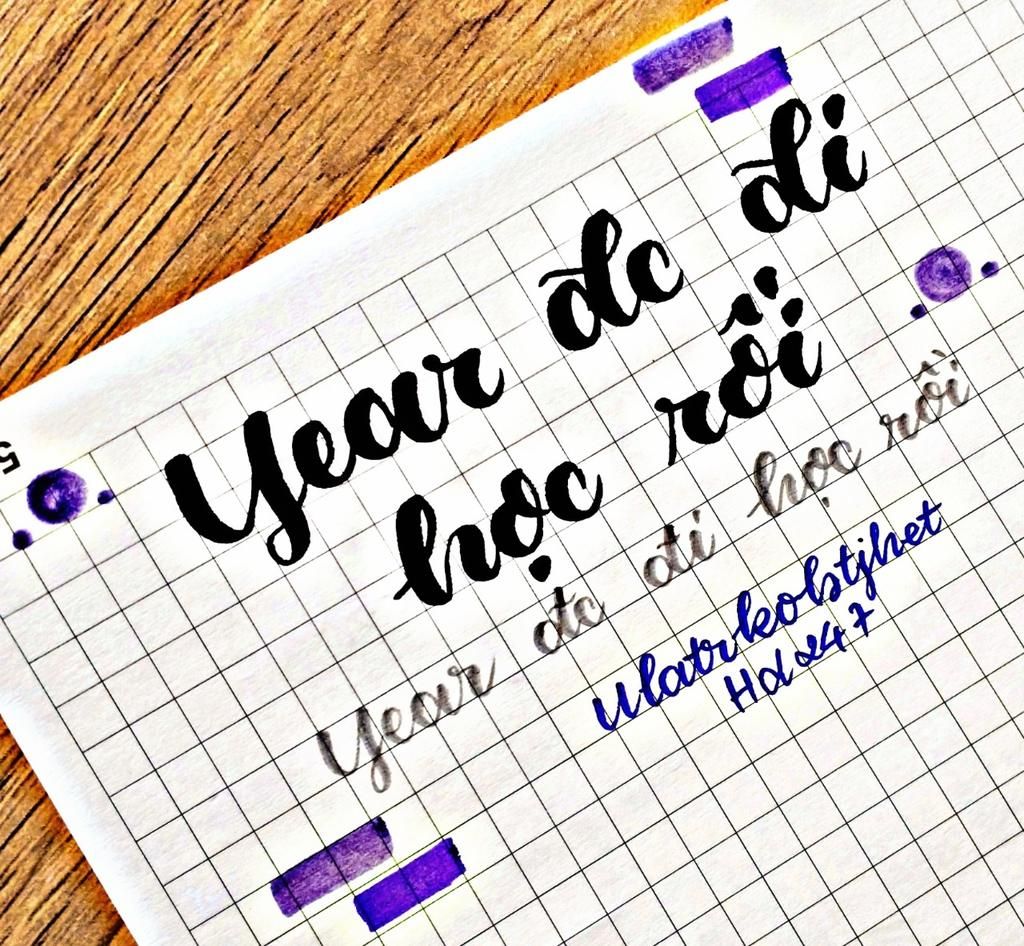 Year đc đi
học rồi
Year đc đi học rồi
ulatrkobtjhet
Hd247
5